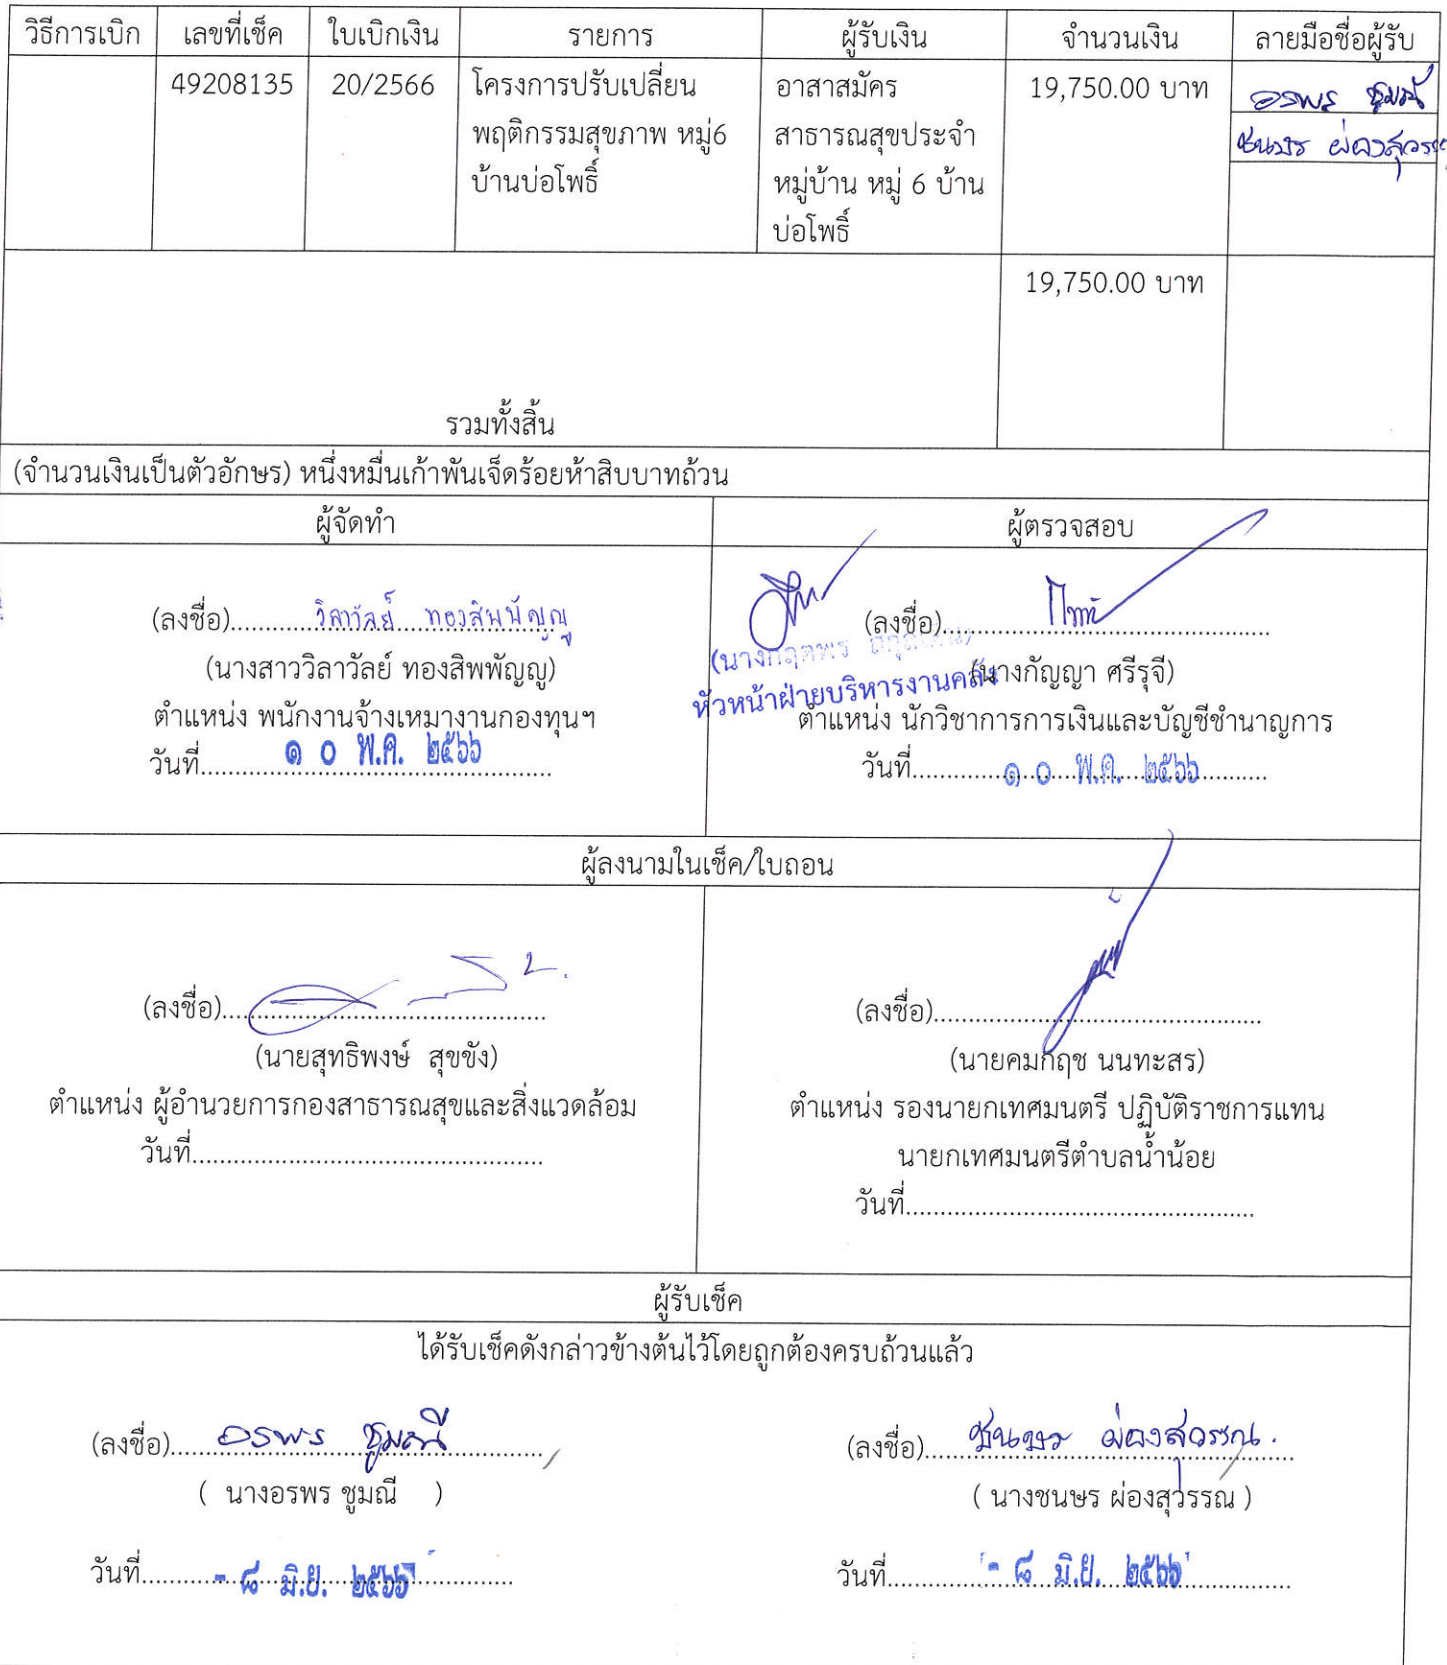 วิธีการเบิก เลขที่เช็ค ใบเบิกเงิน รายการ ผู้รับเงิน จำนวนเงิน ลายมือชื่อผู้รับ
49208135 20/2566 โครงการปรับเปลี่ยน อาสาสมัคร 19,750.00 บาท อรพร ชูมณี
พฤติกรรมสุขภาพ หมู่6 สาธารณสุขประจำ ชนษร ผ่องสุวรรณ
บ้านบ่อโพธิ์ หมู่บ้าน หมู่ 6 บ้าน
บ่อโพธิ์
19,750.00 บาท
รวมทั้งสิ้น
(จำนวนเงินเป็นตัวอักษร) หนึ่งหมื่นเก้าพันเจ็ดร้อยห้าสิบบาทถ้วน
ผู้จัดทำ ผู้ตรวจสอบ
(ลงชื่อ) วิลาวัลย์ ทองสิพพัญญู
(นางสาววิลาวัลย์ ทองสิพพัญญู)
ตำแหน่ง พนักงานจ้างเหมางานกองทุนฯ
วันที่ ๑ ๐ พ.ค. ๒๕๖๖
(ลงชื่อ)
(นางกฤตพร
หัวหน้าฝ่ายบริหารงานคลัง
(นางกัญญา ศรีรุจี)
ตำแหน่ง นักวิชาการการเงินและบัญชีชำนาญการ
วันที่ ๑ ๐ พ.ค. ๒๕๖๖
ผู้ลงนามในเช็ค/ใบถอน
(ลงชื่อ)
(นายสุทธิพงษ์ สุขขัง)
ตำแหน่ง ผู้อำนวยการกองสาธารณสุขและสิ่งแวดล้อม
วันที่
(ลงชื่อ)
(นายคมกฤช นนทะสร)
ตำแหน่ง รองนายกเทศมนตรี ปฏิบัติราชการแทน
นายกเทศมนตรีตำบลน้ำน้อย
วันที่
ผู้รับเช็ค
ได้รับเช็คดังกล่าวข้างต้นไว้โดยถูกต้องครบถ้วนแล้ว
(ลงชื่อ) อรพร ชูมณี
( นางอรพร ชูมณี )
วันที่ - ๘ มิ.ย. ๒๕๖๖
(ลงชื่อ) ชนษร ผ่องสุวรรณ
( นางชนษร ผ่องสุวรรณ )
วันที่ - ๘ มิ.ย. ๒๕๖๖